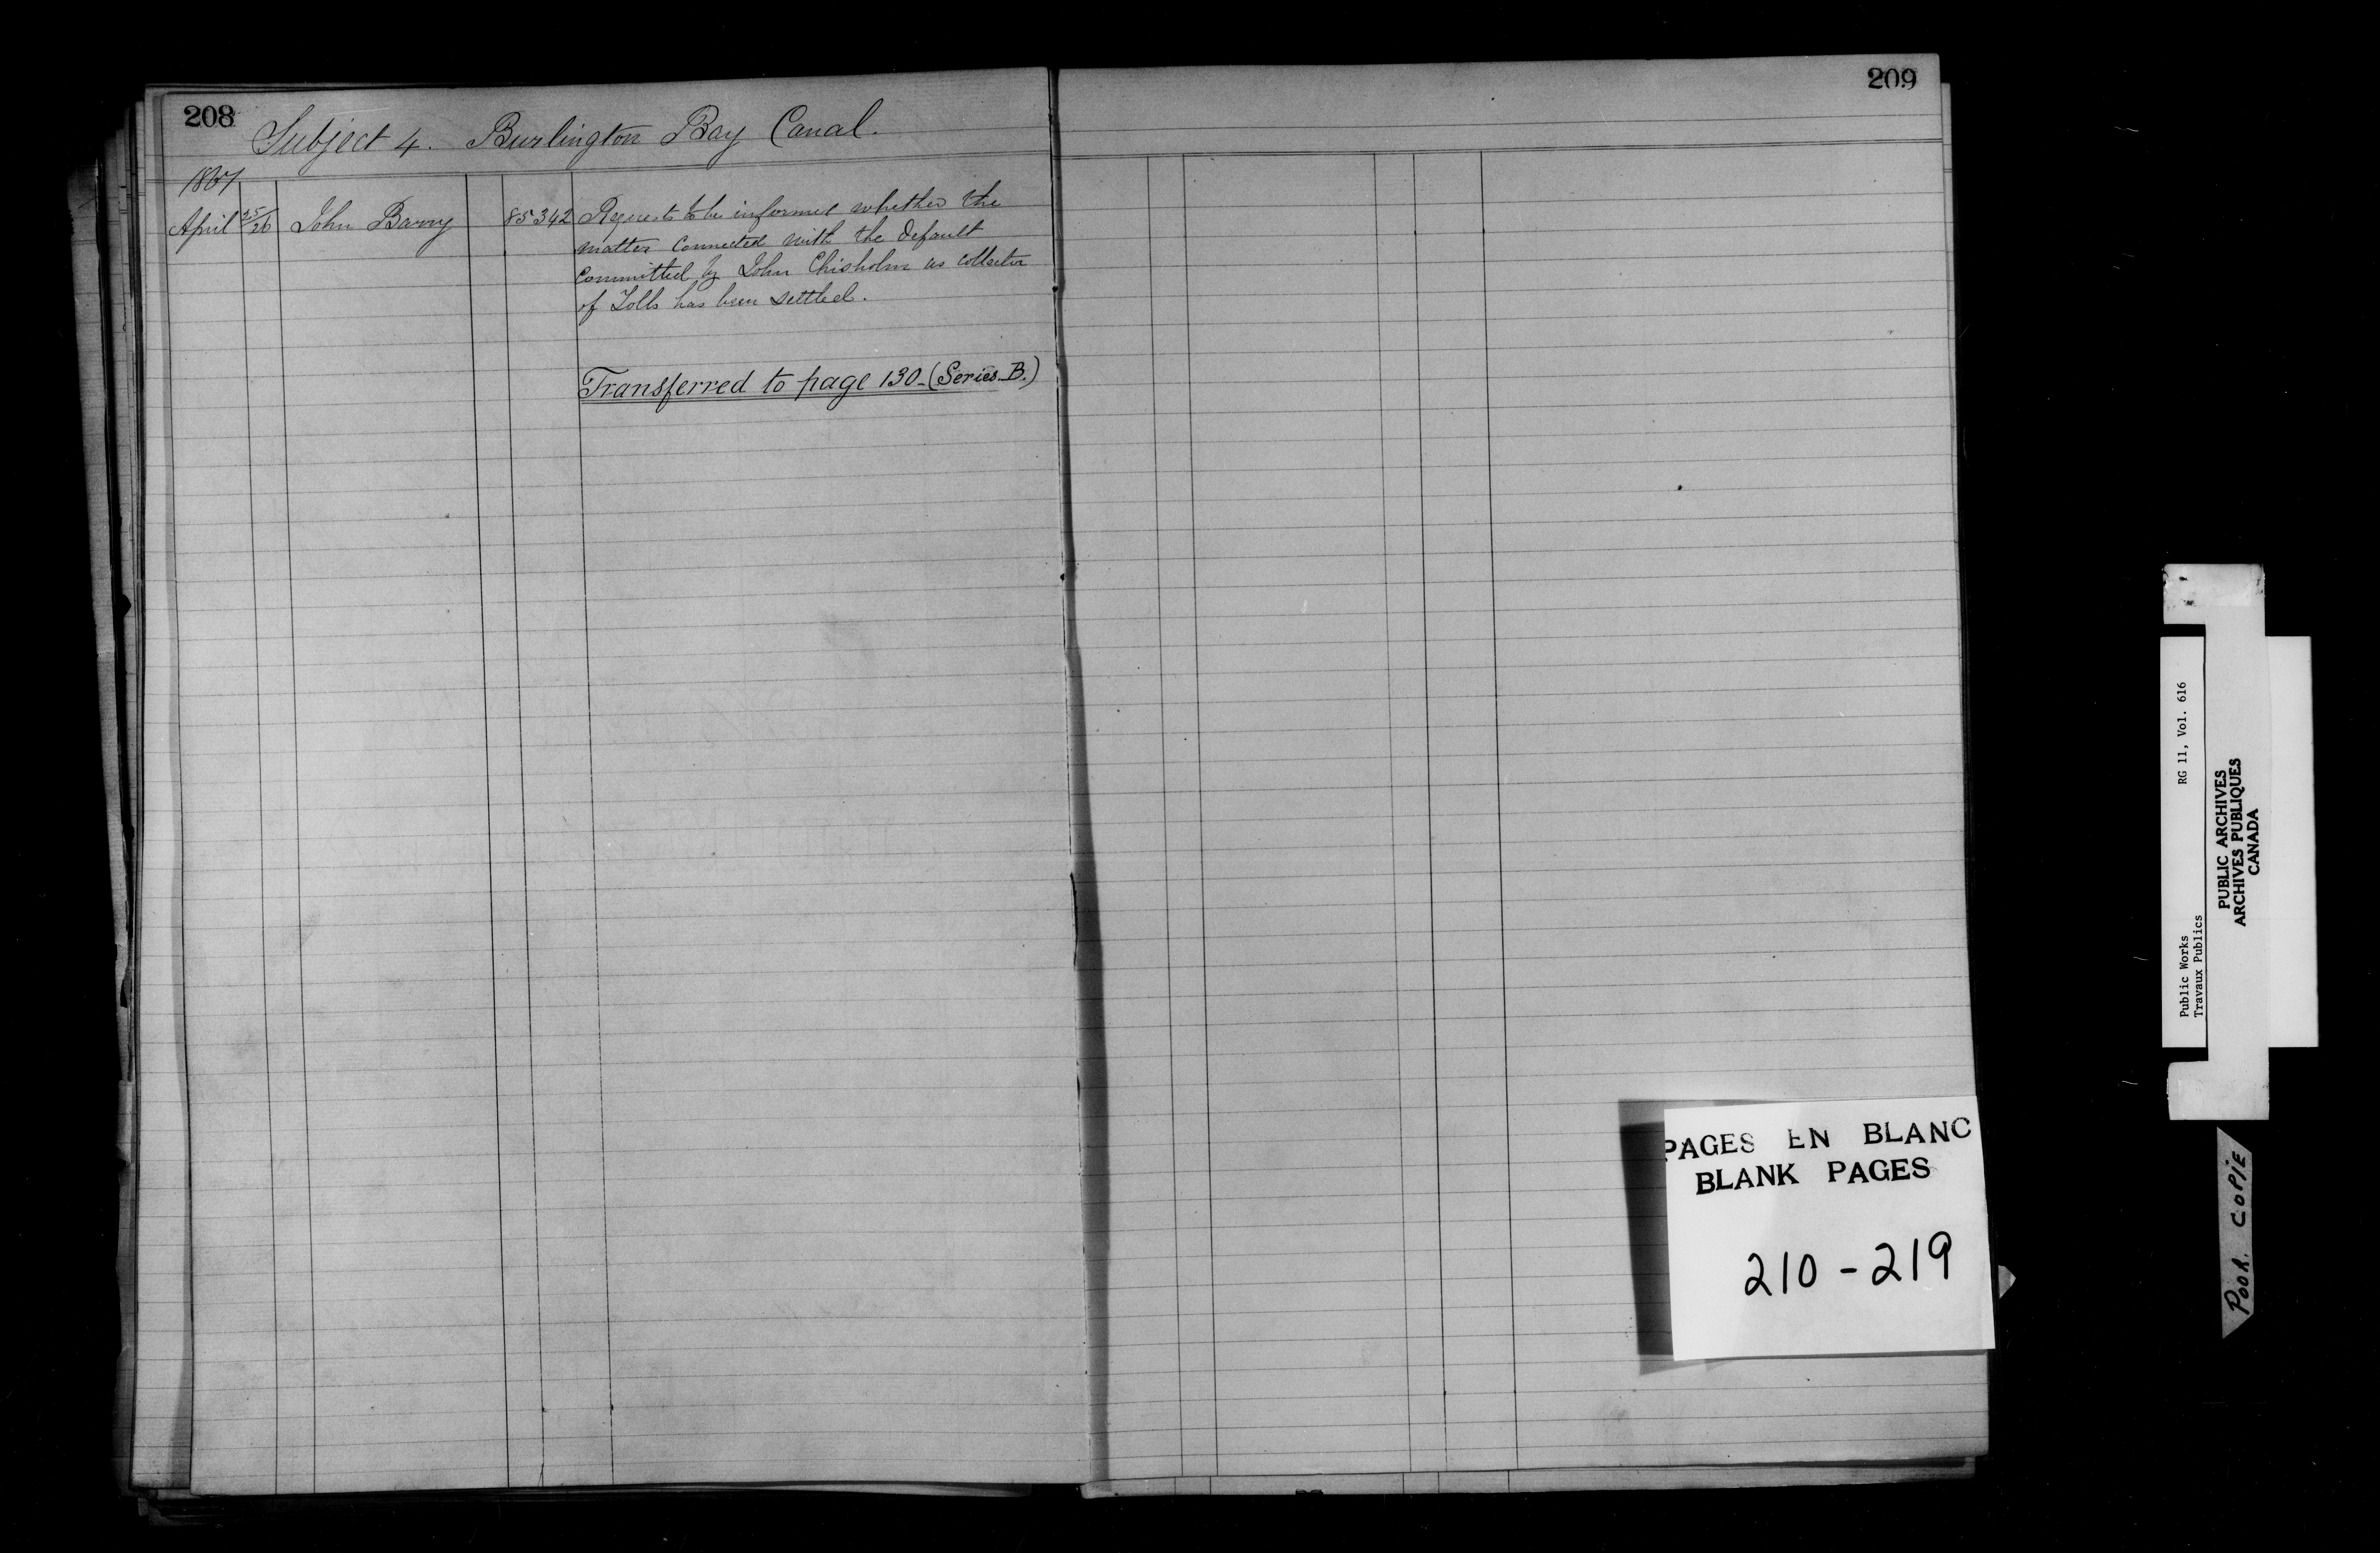 208
Subject 4. Burlington Bay Canal.
1867
April 25/26 John Barry 85342 Requests to be informed whether the
matter connected with the default
committed by John Chisholm as collector
of Tolls has been settled.
Transferred to page 130_(Series_B.)
209
PAGES EN BLANC
BLANK PAGES
210-219
Public Works RG 11, Vol. 616
Travaux Publics
PUBLIC ARCHIVES
ARCHIVES PUBLIQUES
CANADA
POOR COPIE